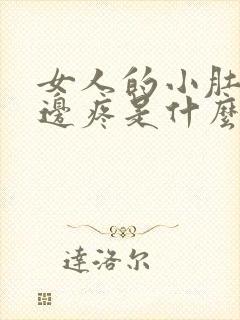 女人的小肚
邊疼是什麼
達洛尔